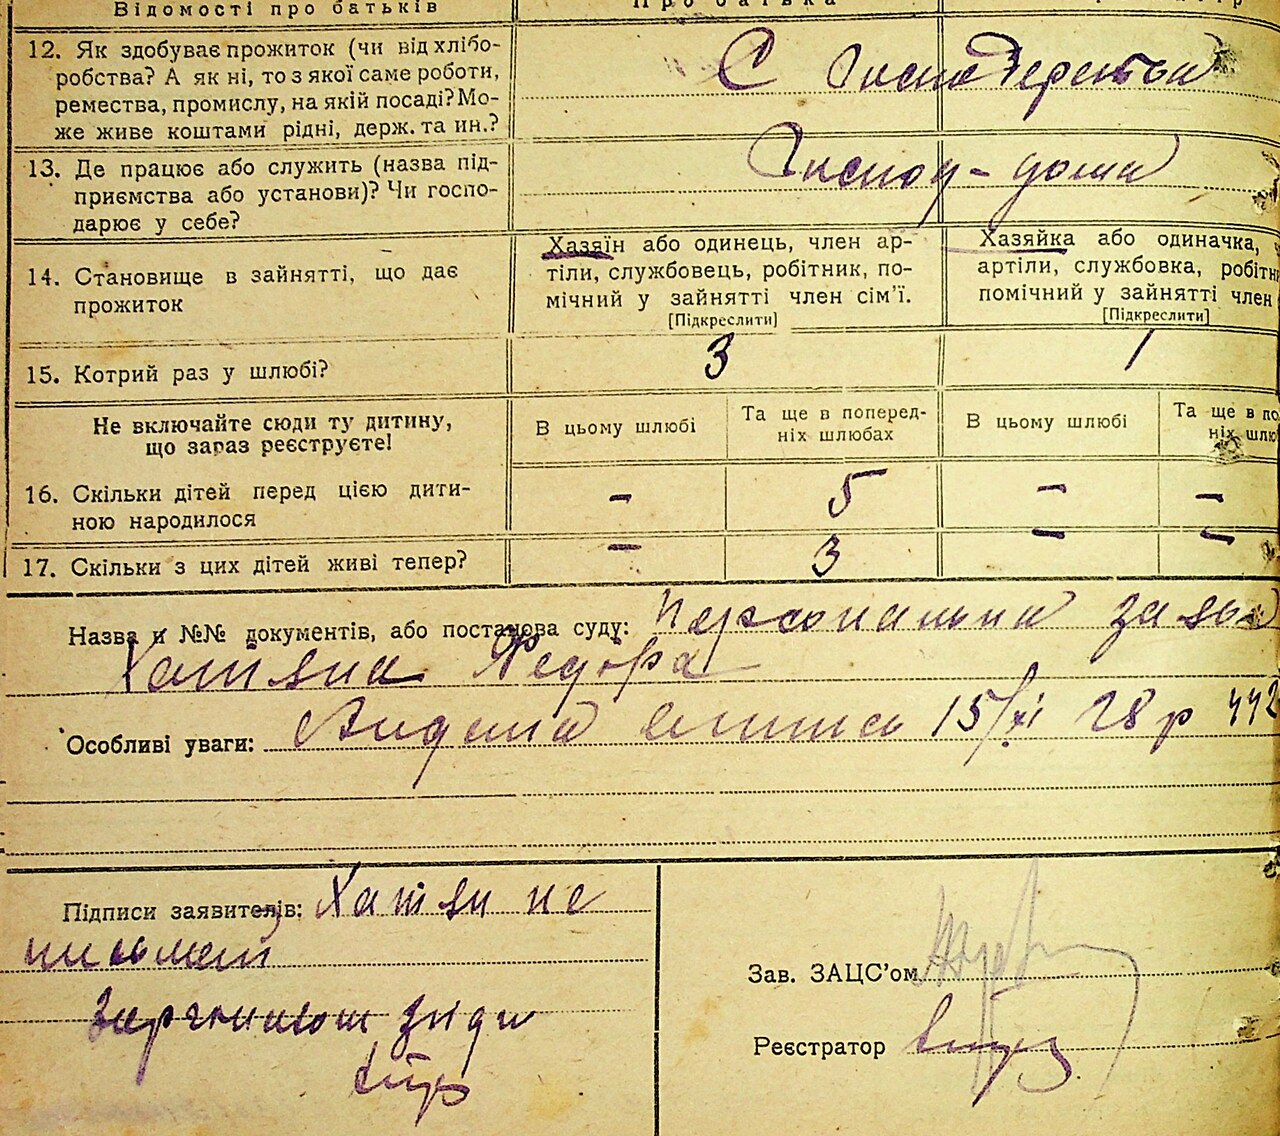 Відомості про батьків
Про батька
12. Як здобуває прожиток (чи від хлібо-
робства? А як ні, то з якої саме роботи,
ремества, промислу, на якій посаді? Мо-
же живе коштами рідні, держ. та ин.?
С Господерства
13. Де працює або служить (назва під-
приємства або установи)? Чи госпо-
дарює у себе?
Господ - дома
14. Становище в зайнятті, що дає
прожиток
Хазяїн або одинець, член ар-
тіли, службовець, робітник, по-
мічний у зайнятті член сім'ї.
[Підкреслити]
Хазяйка або одиначка,
артіли, службовка, робітн
помічний у зайнятті член
[Підкреслити]
15. Котрий раз у шлюбі?
3
1
Не включайте сюди ту дитину,
що зараз реєструєте!
В цьому шлюбі
Та ще в поперед-
ніх шлюбах
В цьому шлюбі
Та ще в по
ніх шлю
16. Скільки дітей перед цією дити-
ною народилося
-
5
-
-
17. Скільки з цих дітей живі тепер?
-
3
-
-
Назва й №№ документів, або постанова суду: персональна заява
Хатяна Федора
Особливі уваги: Видана 15/XI 28 р 442
Підписи заявителів: Хатян не
письмен
Зав. ЗАЦС'ом
Реєстратор